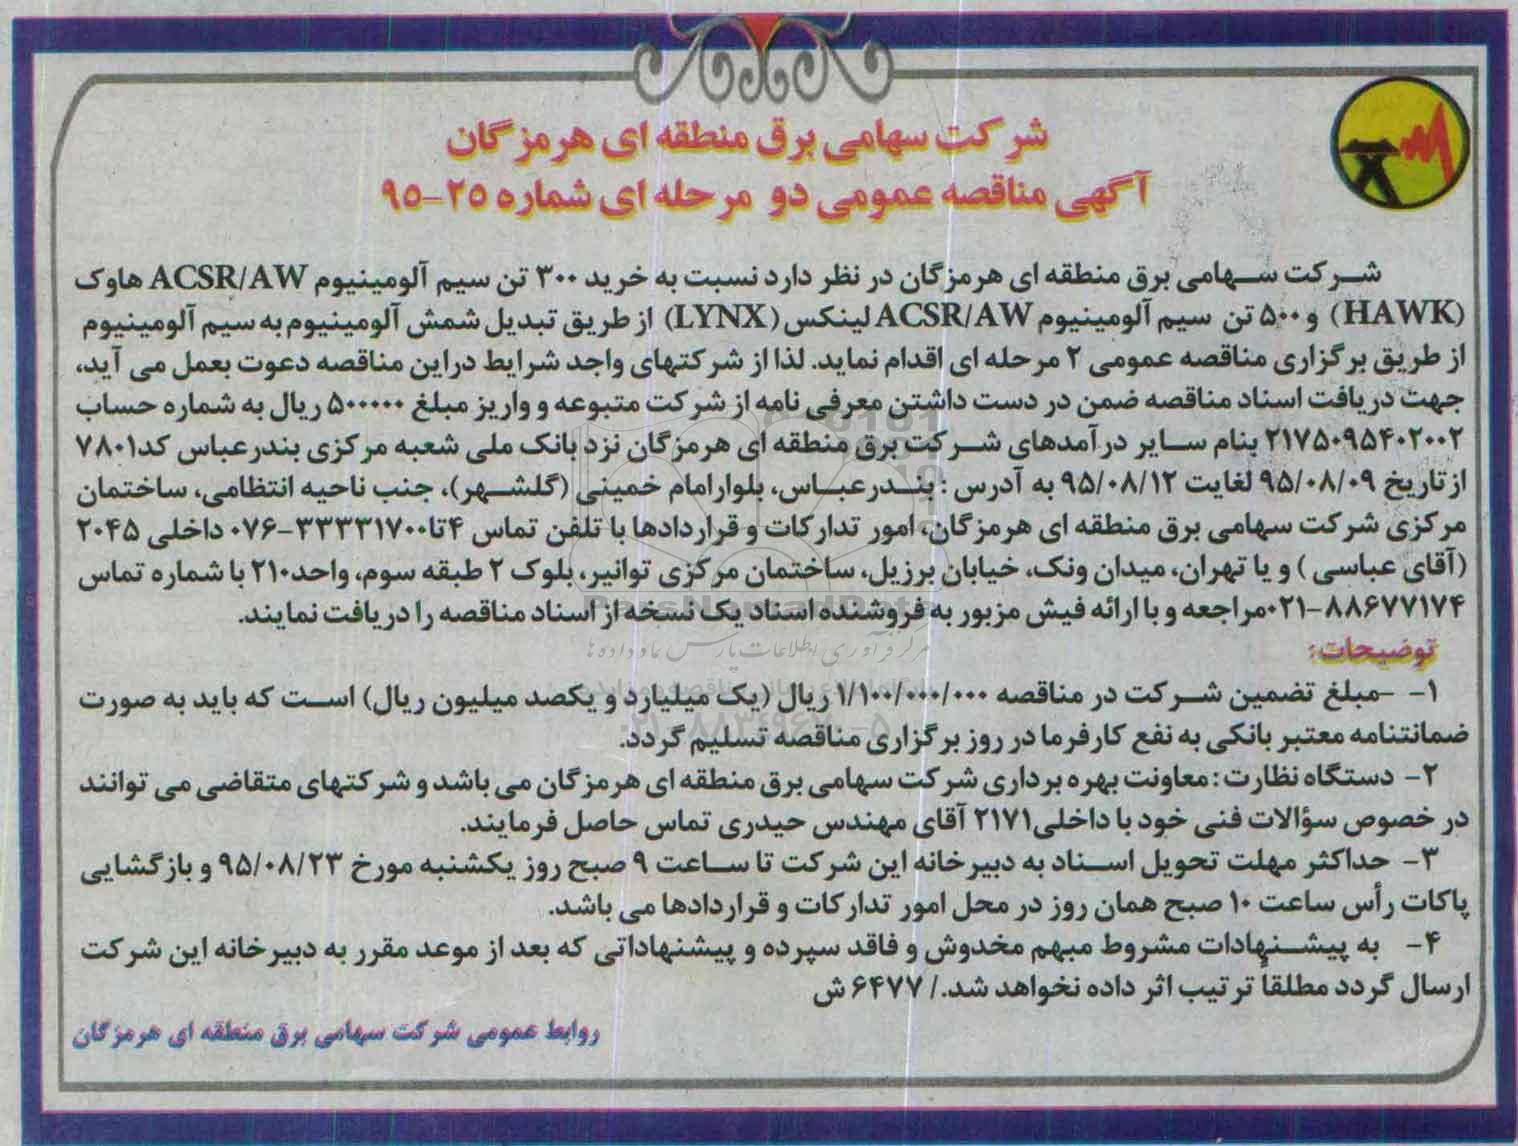 شرکت سهامی برق منطقه ای هرمزگان
آگهی مناقصه عمومی دو مرحله ای شماره ۲۵-۹۵
شرکت سهامی برق منطقه ای هرمزگان در نظر دارد نسبت به خرید ۳۰۰ تن سیم آلومینیوم ACSR/AW هاوک
(HAWK) و ۵۰۰ تن سیم آلومینیوم ACSR/AW لینکس (LYNX) از طریق تبدیل شمش آلومینیوم به سیم آلومینیوم
از طریق برگزاری مناقصه عمومی ۲ مرحله ای اقدام نماید. لذا از شرکتهای واجد شرایط دراین مناقصه دعوت بعمل می آید،
جهت دریافت اسناد مناقصه ضمن در دست داشتن معرفی نامه از شرکت متبوعه و واریز مبلغ ۵۰۰۰۰۰ ریال به شماره حساب
۲۱۷۵۰۹۵۴۰۲۰۰۲ بنام سایر درآمدهای شرکت برق منطقه ای هرمزگان نزد بانک ملی شعبه مرکزی بندرعباس کد۷۸۰۱
از تاریخ ۹۵/۰۸/۰۹ لغایت ۹۵/۰۸/۱۲ به آدرس : بندرعباس، بلوارامام خمینی (گلشهر)، جنب ناحیه انتظامی، ساختمان
مرکزی شرکت سهامی برق منطقه ای هرمزگان، امور تدارکات و قراردادها با تلفن تماس ۴تا۳۳۳۳۱۷۰۰-۰۷۶ داخلی ۲۰۴۵
(آقای عباسی ) و یا تهران، میدان ونک، خیابان برزیل، ساختمان مرکزی توانیر، بلوک ۲ طبقه سوم، واحد۲۱۰ با شماره تماس
۸۸۶۷۷۱۷۴-۰۲۱مراجعه و با ارائه فیش مزبور به فروشنده اسناد یک نسخه از اسناد مناقصه را دریافت نمایند.
ParsNamadData
مرکز فرآوری اطلاعات پارس نماد داده ها
توضیحات:
۱- -مبلغ تضمین شرکت در مناقصه ۱/۱۰۰/۰۰۰/۰۰۰ ریال (یک میلیارد و یکصد میلیون ریال) است که باید به صورت
۰۲۱-۸۸۳۴۹۶۷۰-۵
ضمانتنامه معتبر بانکی به نفع کارفرما در روز برگزاری مناقصه تسلیم گردد.
۲- دستگاه نظارت : معاونت بهره برداری شرکت سهامی برق منطقه ای هرمزگان می باشد و شرکتهای متقاضی می توانند
در خصوص سؤالات فنی خود با داخلی۲۱۷۱ آقای مهندس حیدری تماس حاصل فرمایند.
۳- حداکثر مهلت تحویل اسناد به دبیرخانه این شرکت تا ساعت ۹ صبح روز یکشنبه مورخ ۹۵/۰۸/۲۳ و بازگشایی
پاکات رأس ساعت ۱۰ صبح همان روز در محل امور تدارکات و قراردادها می باشد.
۴- به پیشنهادات مشروط مبهم مخدوش و فاقد سپرده و پیشنهاداتی که بعد از موعد مقرر به دبیرخانه این شرکت
ارسال گردد مطلقاً ترتیب اثر داده نخواهد شد./ ۶۴۷۷ ش
روابط عمومی شرکت سهامی برق منطقه ای هرمزگان